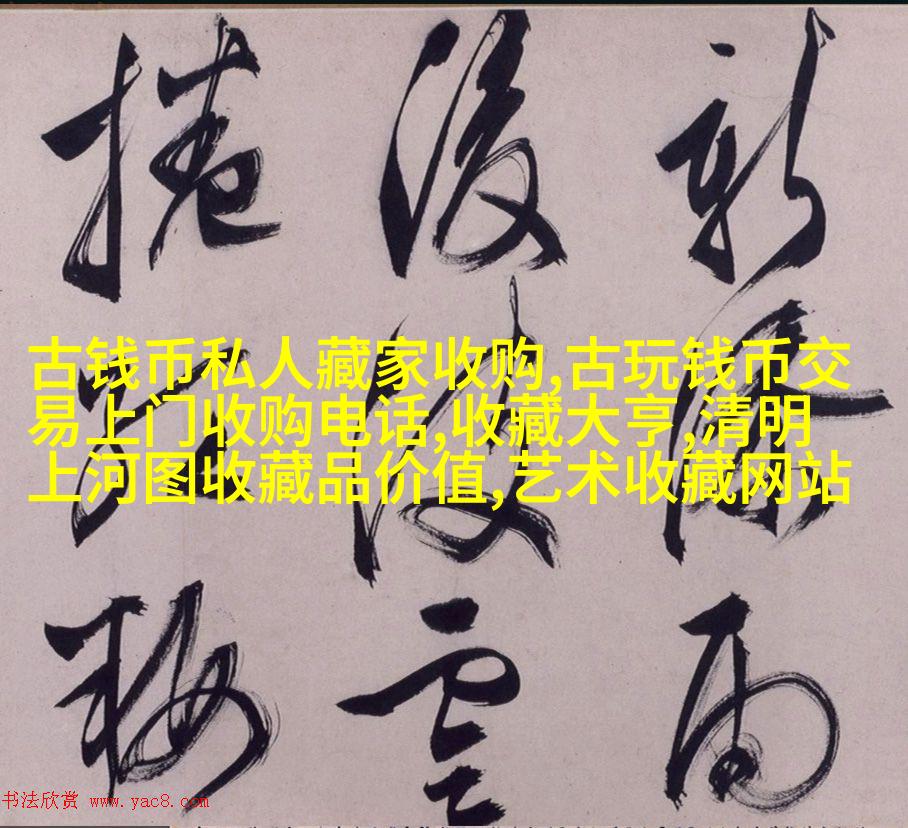 新 雨
後 雲
捲 梅
古钱币私人藏家收购,古玩钱币交
易上门收购电话,收藏大亨,清明
上河图收藏品价值,艺术收藏网站
书法欣赏 www.yac8.com